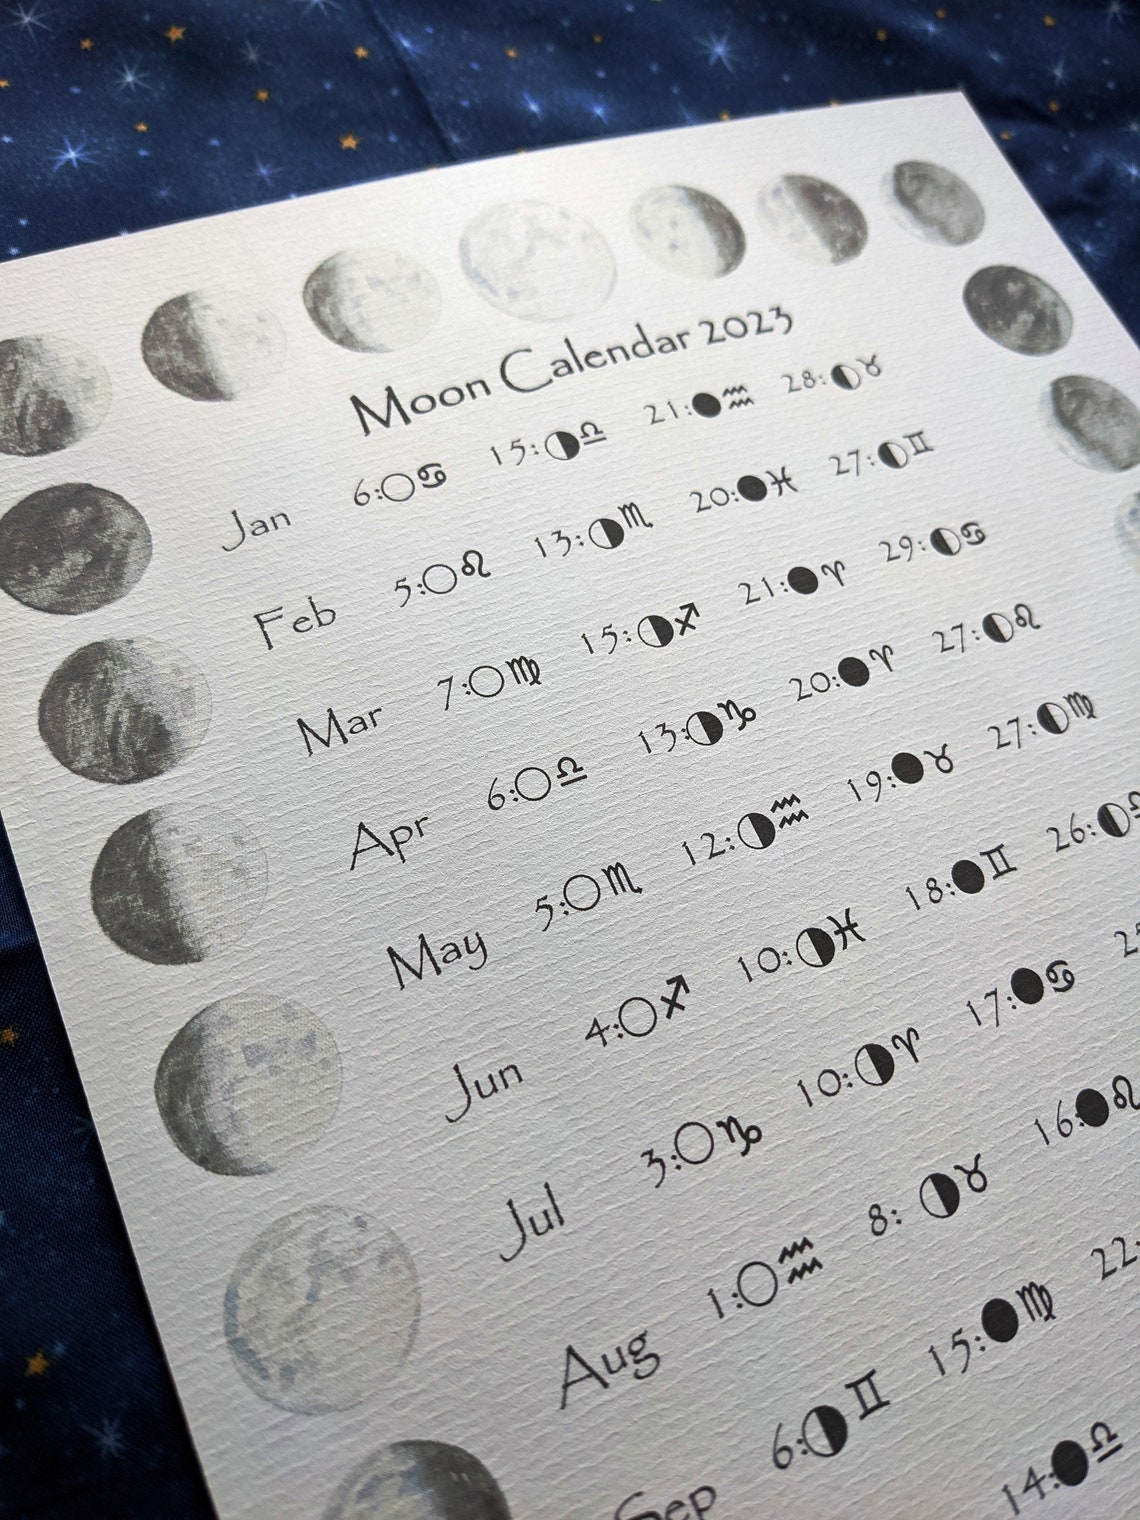 Moon Calendar 2023
Jan 6:○♋ 15:◑♎ 21:●♒ 28:◐♉
Feb 5:○♌ 13:◑♏ 20:●♓ 27:◐♊
Mar 7:○♍ 15:◑♐ 21:●♈ 29:◐♋
Apr 6:○♎ 13:◑♑ 20:●♈ 27:◐♌
May 5:○♏ 12:◑♒ 19:●♉ 27:◐♍
Jun 4:○♐ 10:◑♓ 18:●♊ 26:◐♎
Jul 3:○♑ 10:◑♈ 17:●♋
Aug 1:○♒ 8: ◑♉ 16:●♌
Sep 6:◑♊ 15:●♍ 22:
14:●♎